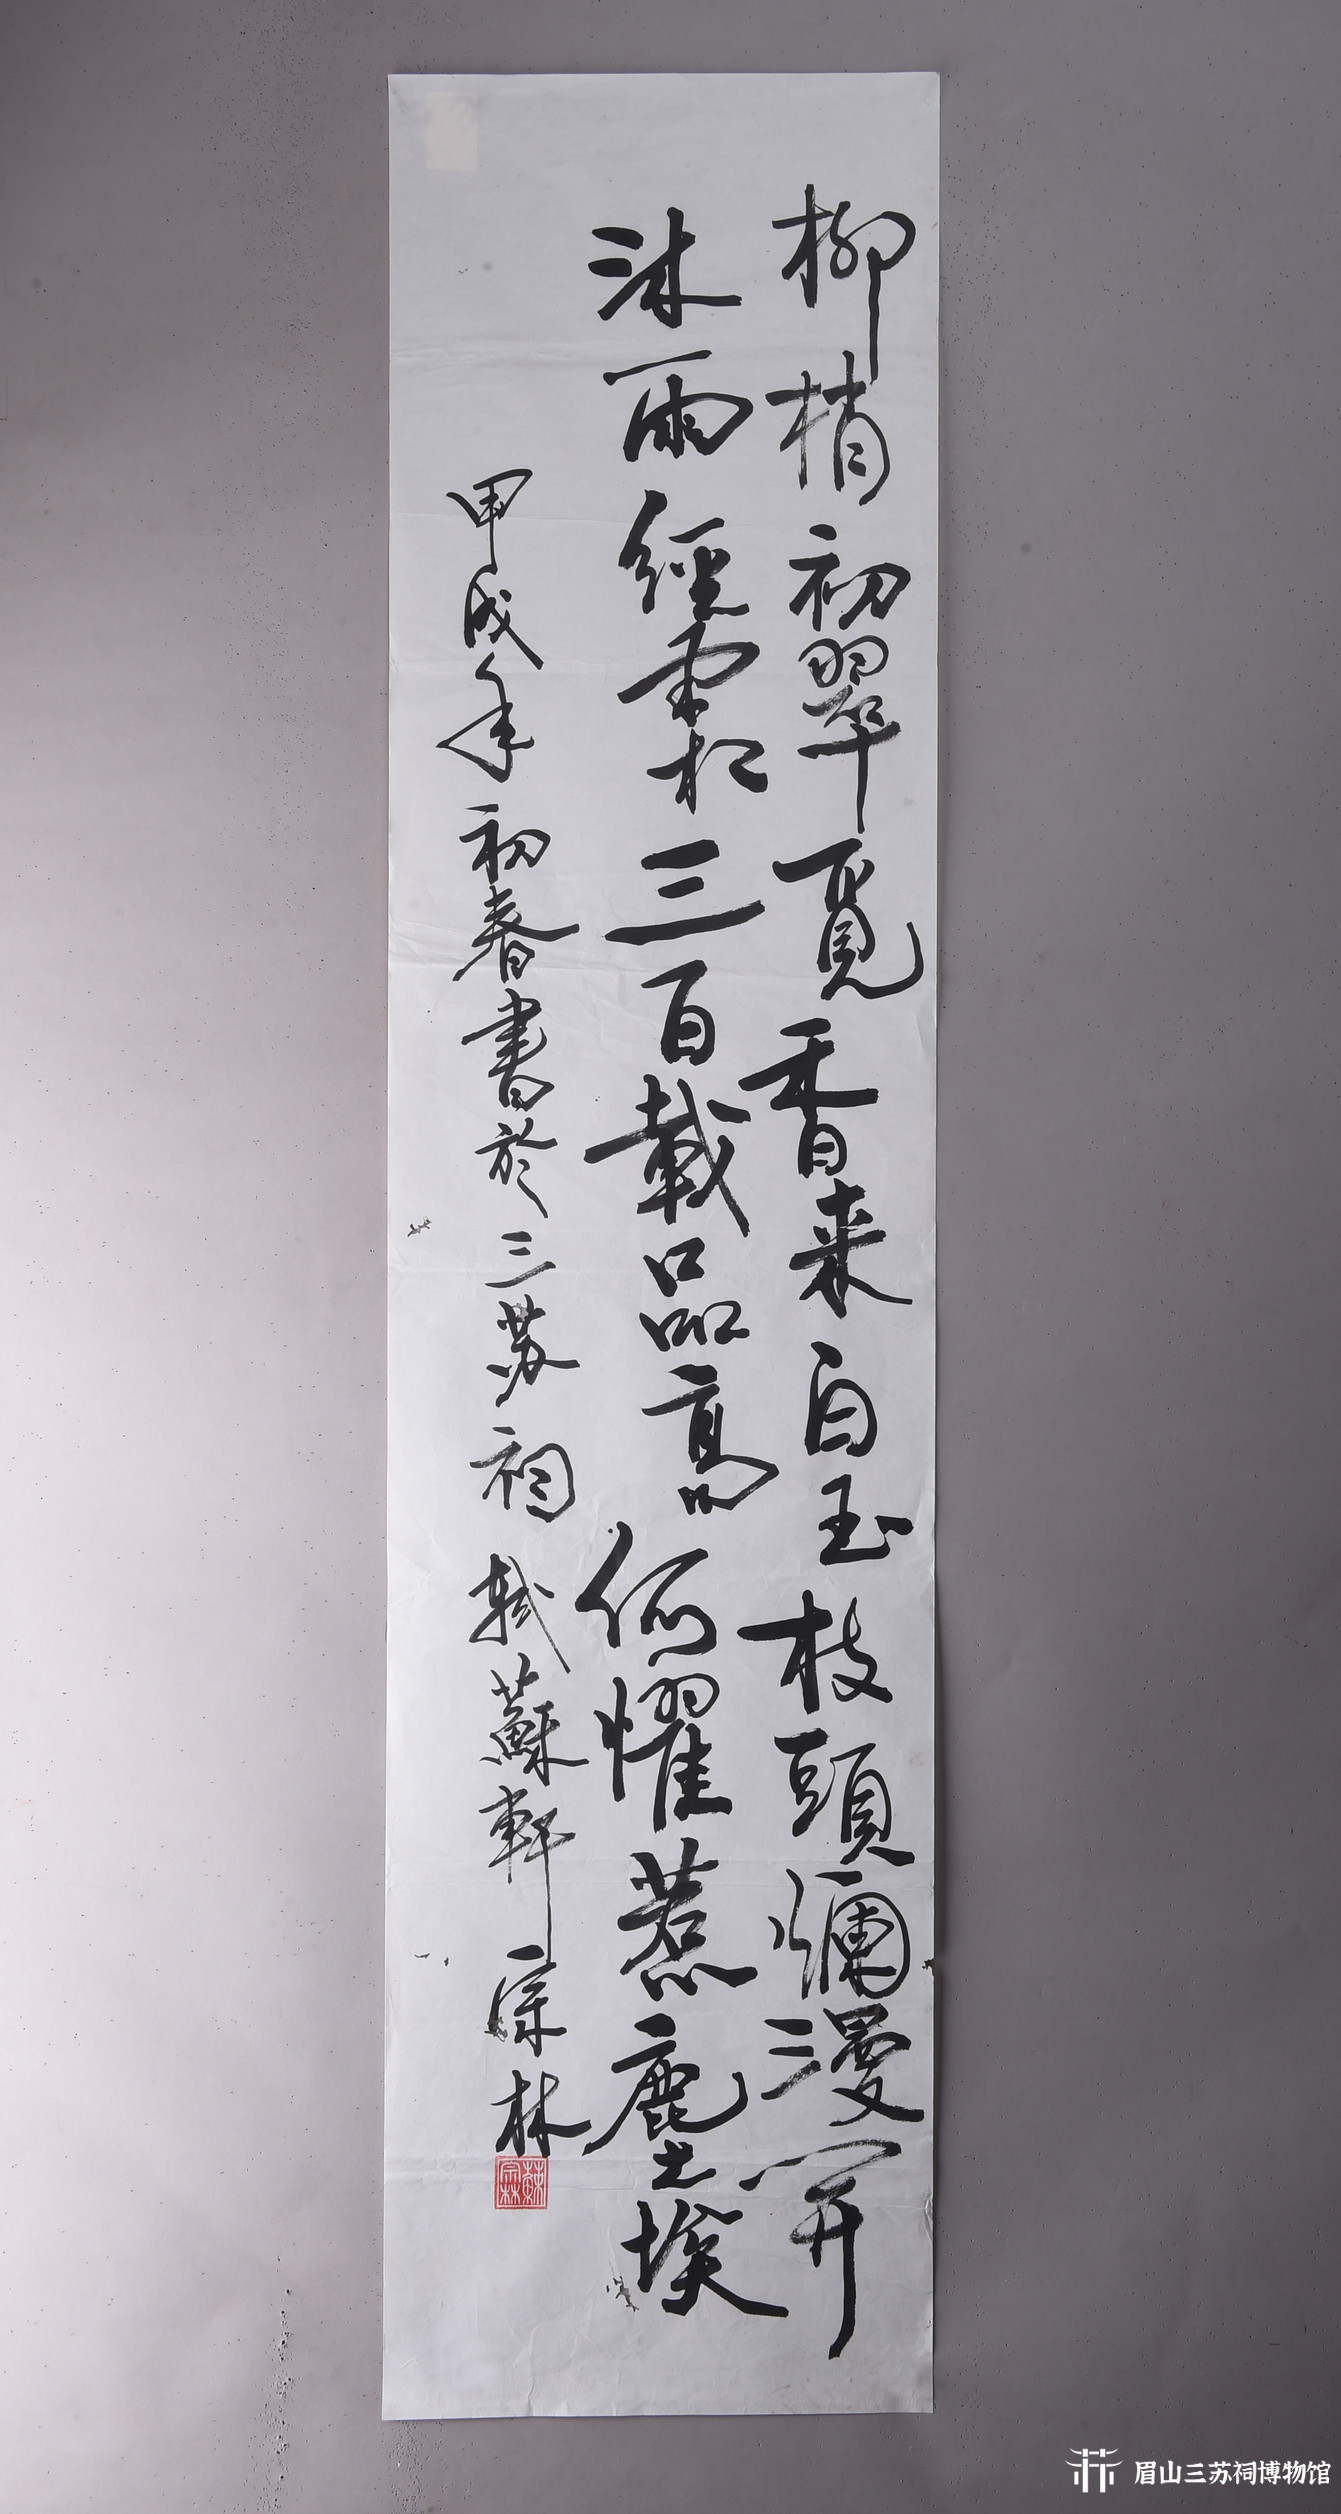 柳梢初翠覓香来白玉枝頭爛漫开
沐雨經霜三百載品高何懼惹塵埃
甲戌年初春書於三苏祠軾蘇軒宗林
眉山三苏祠博物馆